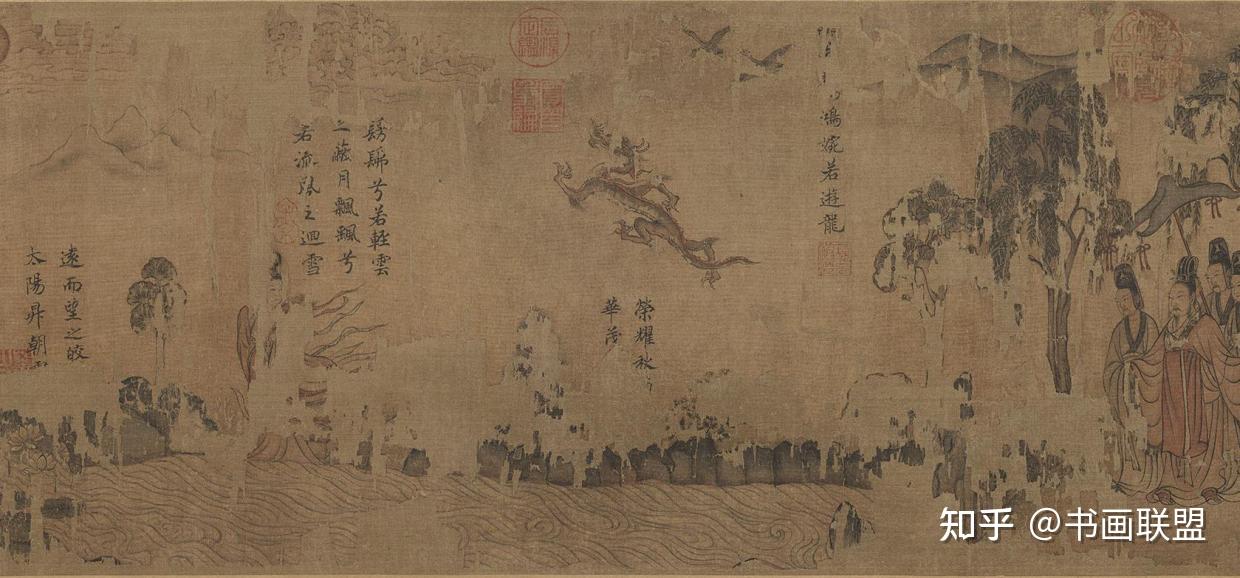 鴻婉若遊龍
榮耀秋
華茂
髣髴兮若輕雲
之蔽月飄飄兮
若流風之迴雪
遠而望之皎
太陽昇朝
知乎 @书画联盟